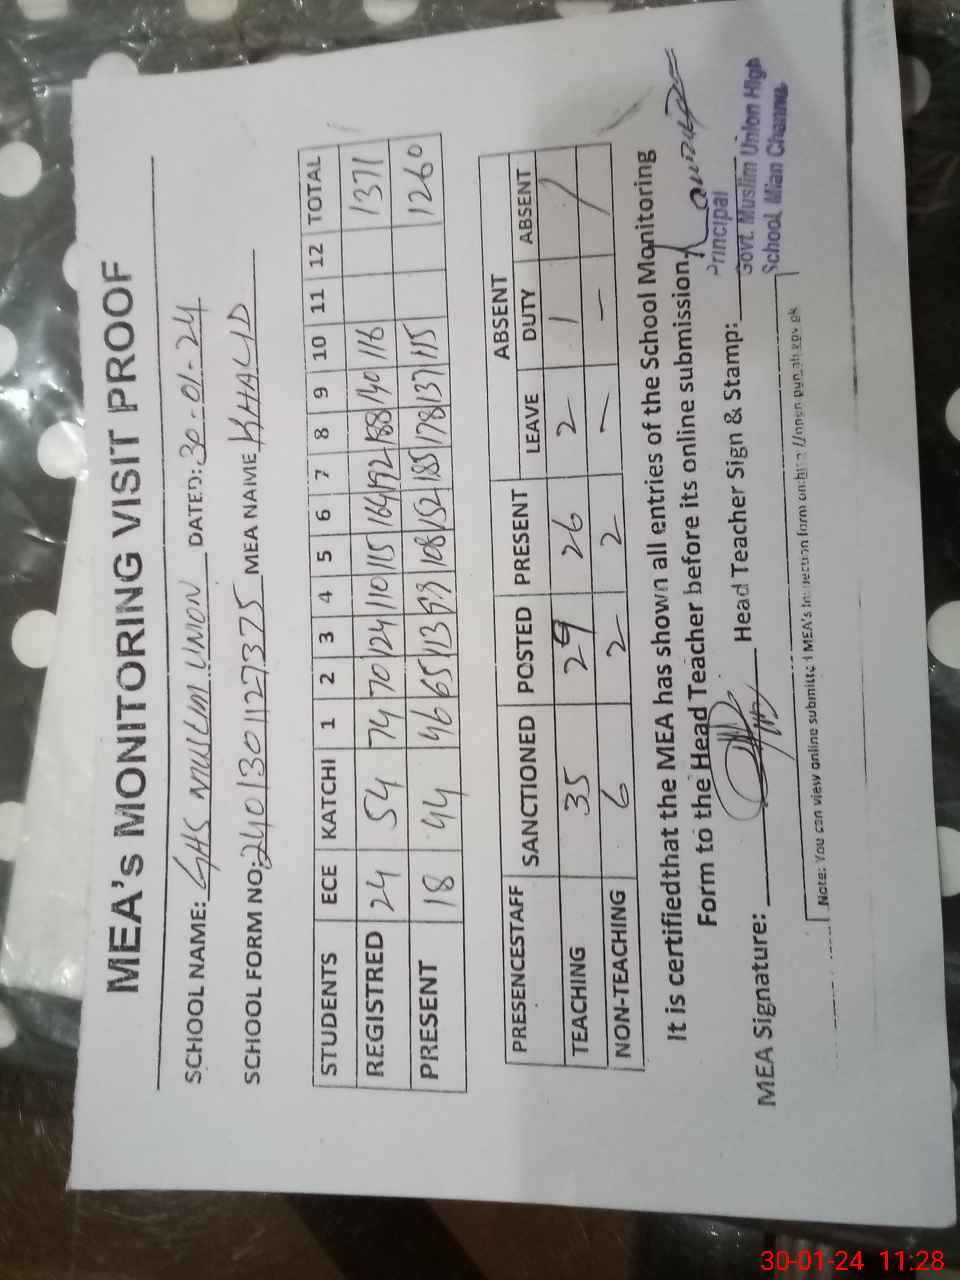 MEA's MONITORING VISIT PROOF
SCHOOL NAME: GHS MUSLIM UNION DATED: 30-01-24
SCHOOL FORM NO: 2401301127375 MEA NAME KHALID
STUDENTS ECE KATCHI 1 2 3 4 5 6 7 8 9 10 11 12 TOTAL
REGISTRED 24 54 74 70 124 110 115 164 192 188 140 116 1371
PRESENT 18 44 46 65 113 99 108 152 185 178 137 115 1260
PRESENCESTAFF SANCTIONED POSTED PRESENT ABSENT
LEAVE DUTY ABSENT
TEACHING 35 29 26 2 1 /
NON-TEACHING 6 2 2 - -
It is certifiedthat the MEA has shown all entries of the School Monitoring
Form to the Head Teacher before its online submission.
MEA Signature: Head Teacher Sign & Stamp:
Principal
Govt. Muslim Union High
School Mian Channu
Note: You can view online submitted MEA's Inspection form on
30-01-24 11:28